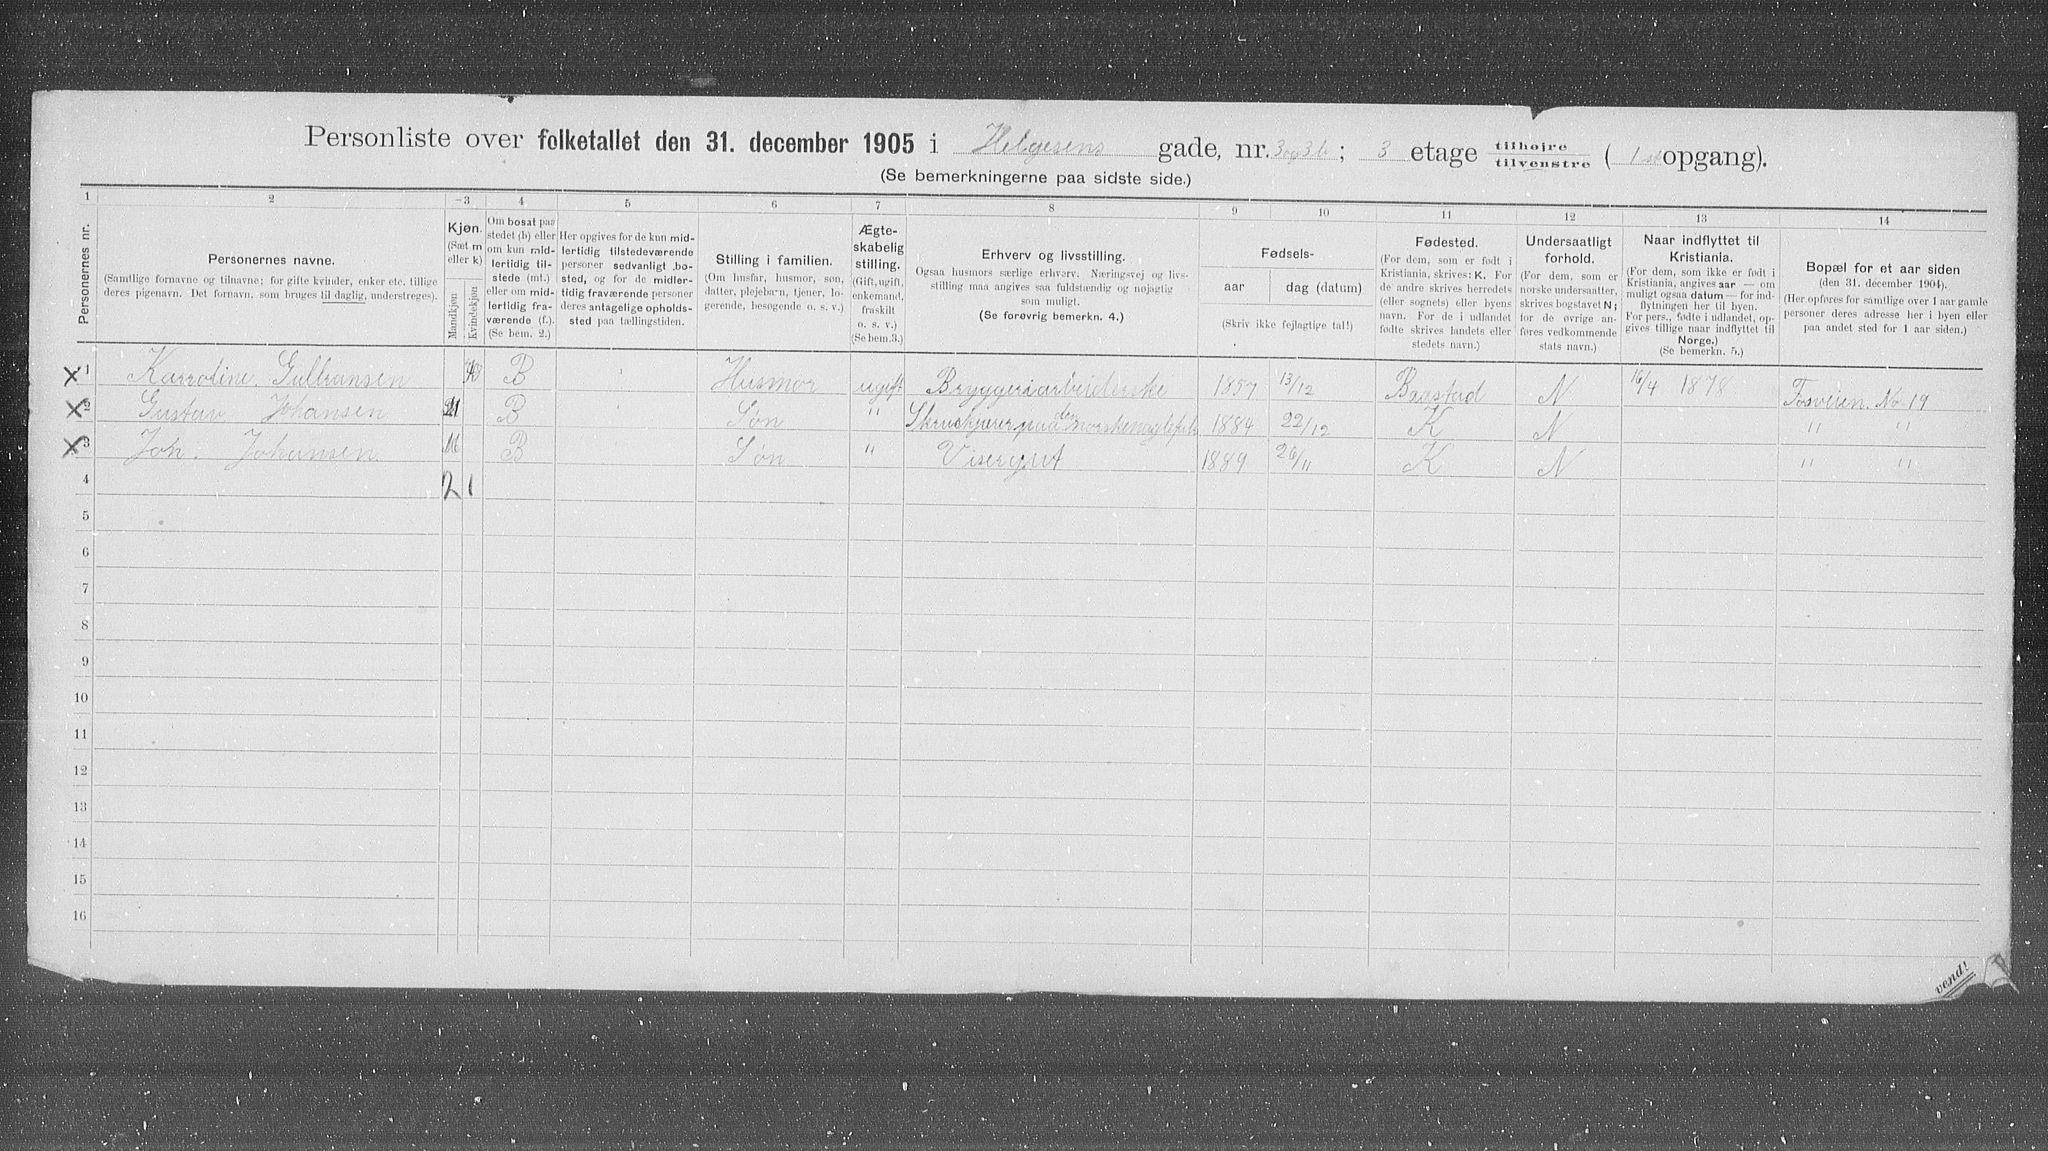 Personliste over folketallet den 31. december 1905 i Helgesens gade, nr. 3 og 3b; 3 etage tilhøjre tilvenstre (1st opgang).
(Se bemerkningerne paa sidste side.)
1 2 3 4 5 6 7 8 9 10 11 12 13 14
Personernes nr.
Personernes navne.
(Samtlige fornavne og tilnavne; for gifte kvinder, enker etc. tillige
deres pigenavn. Det fornavn, som bruges til daglig, understreges).
Kjøn.
(Sæt m
eller k)
Mandkjøn
Kvindekjøn
Om bosat paa
stedet (b) eller
om kun mid-
lertidig til-
stede (mt.)
eller om mid-
lertidig fra-
værende (f.).
(Se bem. 2.)
Her opgives for de kun mid-
lertidig tilstedeværende
personer sedvanligt bo-
sted, og for de midler-
tidig fraværende personer
deres antagelige opholds-
sted paa tællingstiden.
Stilling i familien.
(Om husfar, husmor, søn,
datter, plejebarn, tjener, lo-
gerende, besøgende o. s. v.)
Ægte-
skabelig
stilling.
(Gift, ugift,
enkemand,
fraskilt
o. s. v.)
(Se bem. 3.)
Erhverv og livsstilling.
Ogsaa husmors særlige erhverv. Næringsvej og livs-
stilling maa angives saa fuldstændig og nøjagtig
som muligt.
(Se forøvrig bemerkn. 4.)
Fødsels-
aar dag (datum)
(Skriv ikke fejlagtige tal!)
Fødested.
(For dem, som er født i
Kristiania, skrives: K. For
de andre skrives herredets
(eller sognets) eller byens
navn. For de i udlandet
fødte skrives landets eller
stedets navn.)
Undersaatligt
forhold.
(For dem, som er
norske undersaatter,
skrives bogstavet N;
for de øvrige an-
føres vedkommende
stats navn.)
Naar indflyttet til
Kristiania.
(For dem, som ikke er født i
Kristiania, angives aar — om
muligt ogsaa datum — for ind-
flytningen her til byen.
For pers., fødte i udlandet, op-
gives tillige naar indflyttet til
Norge.)
(Se bemerkn. 5.)
Bopæl for et aar siden
(den 31. december 1904).
(Her opføres for samtlige over 1 aar gamle
personer deres adresse her i byen eller
paa andet sted for 1 aar siden.)
X 1 Karroline. Gulbransen K B Husmor ugift Bryggeriarbeiderske 1857 13/12 Baastad N 16/4 1878 Fosveien. No 19
X 2 Gustav Johansen M B Søn " 1884 22/12 K N " "
X 3 Joh. Johansen. M B Søn " Visergut 1889 26/11 K N " "
4 2 1
5
6
7
8
9
10
11
12
13
14
15
16
vend!